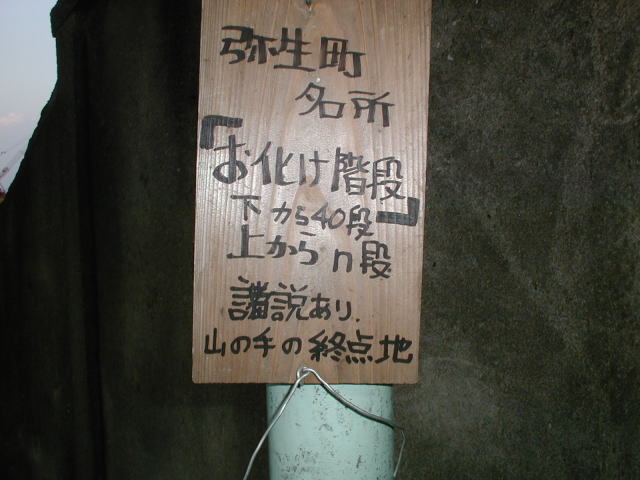 弥生町
名所
「お化け階段」
下から40段
上からn段
諸説あり.
山の手の終点地